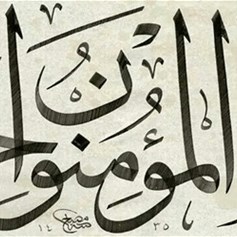 المؤمنون
١٤ ٣٥